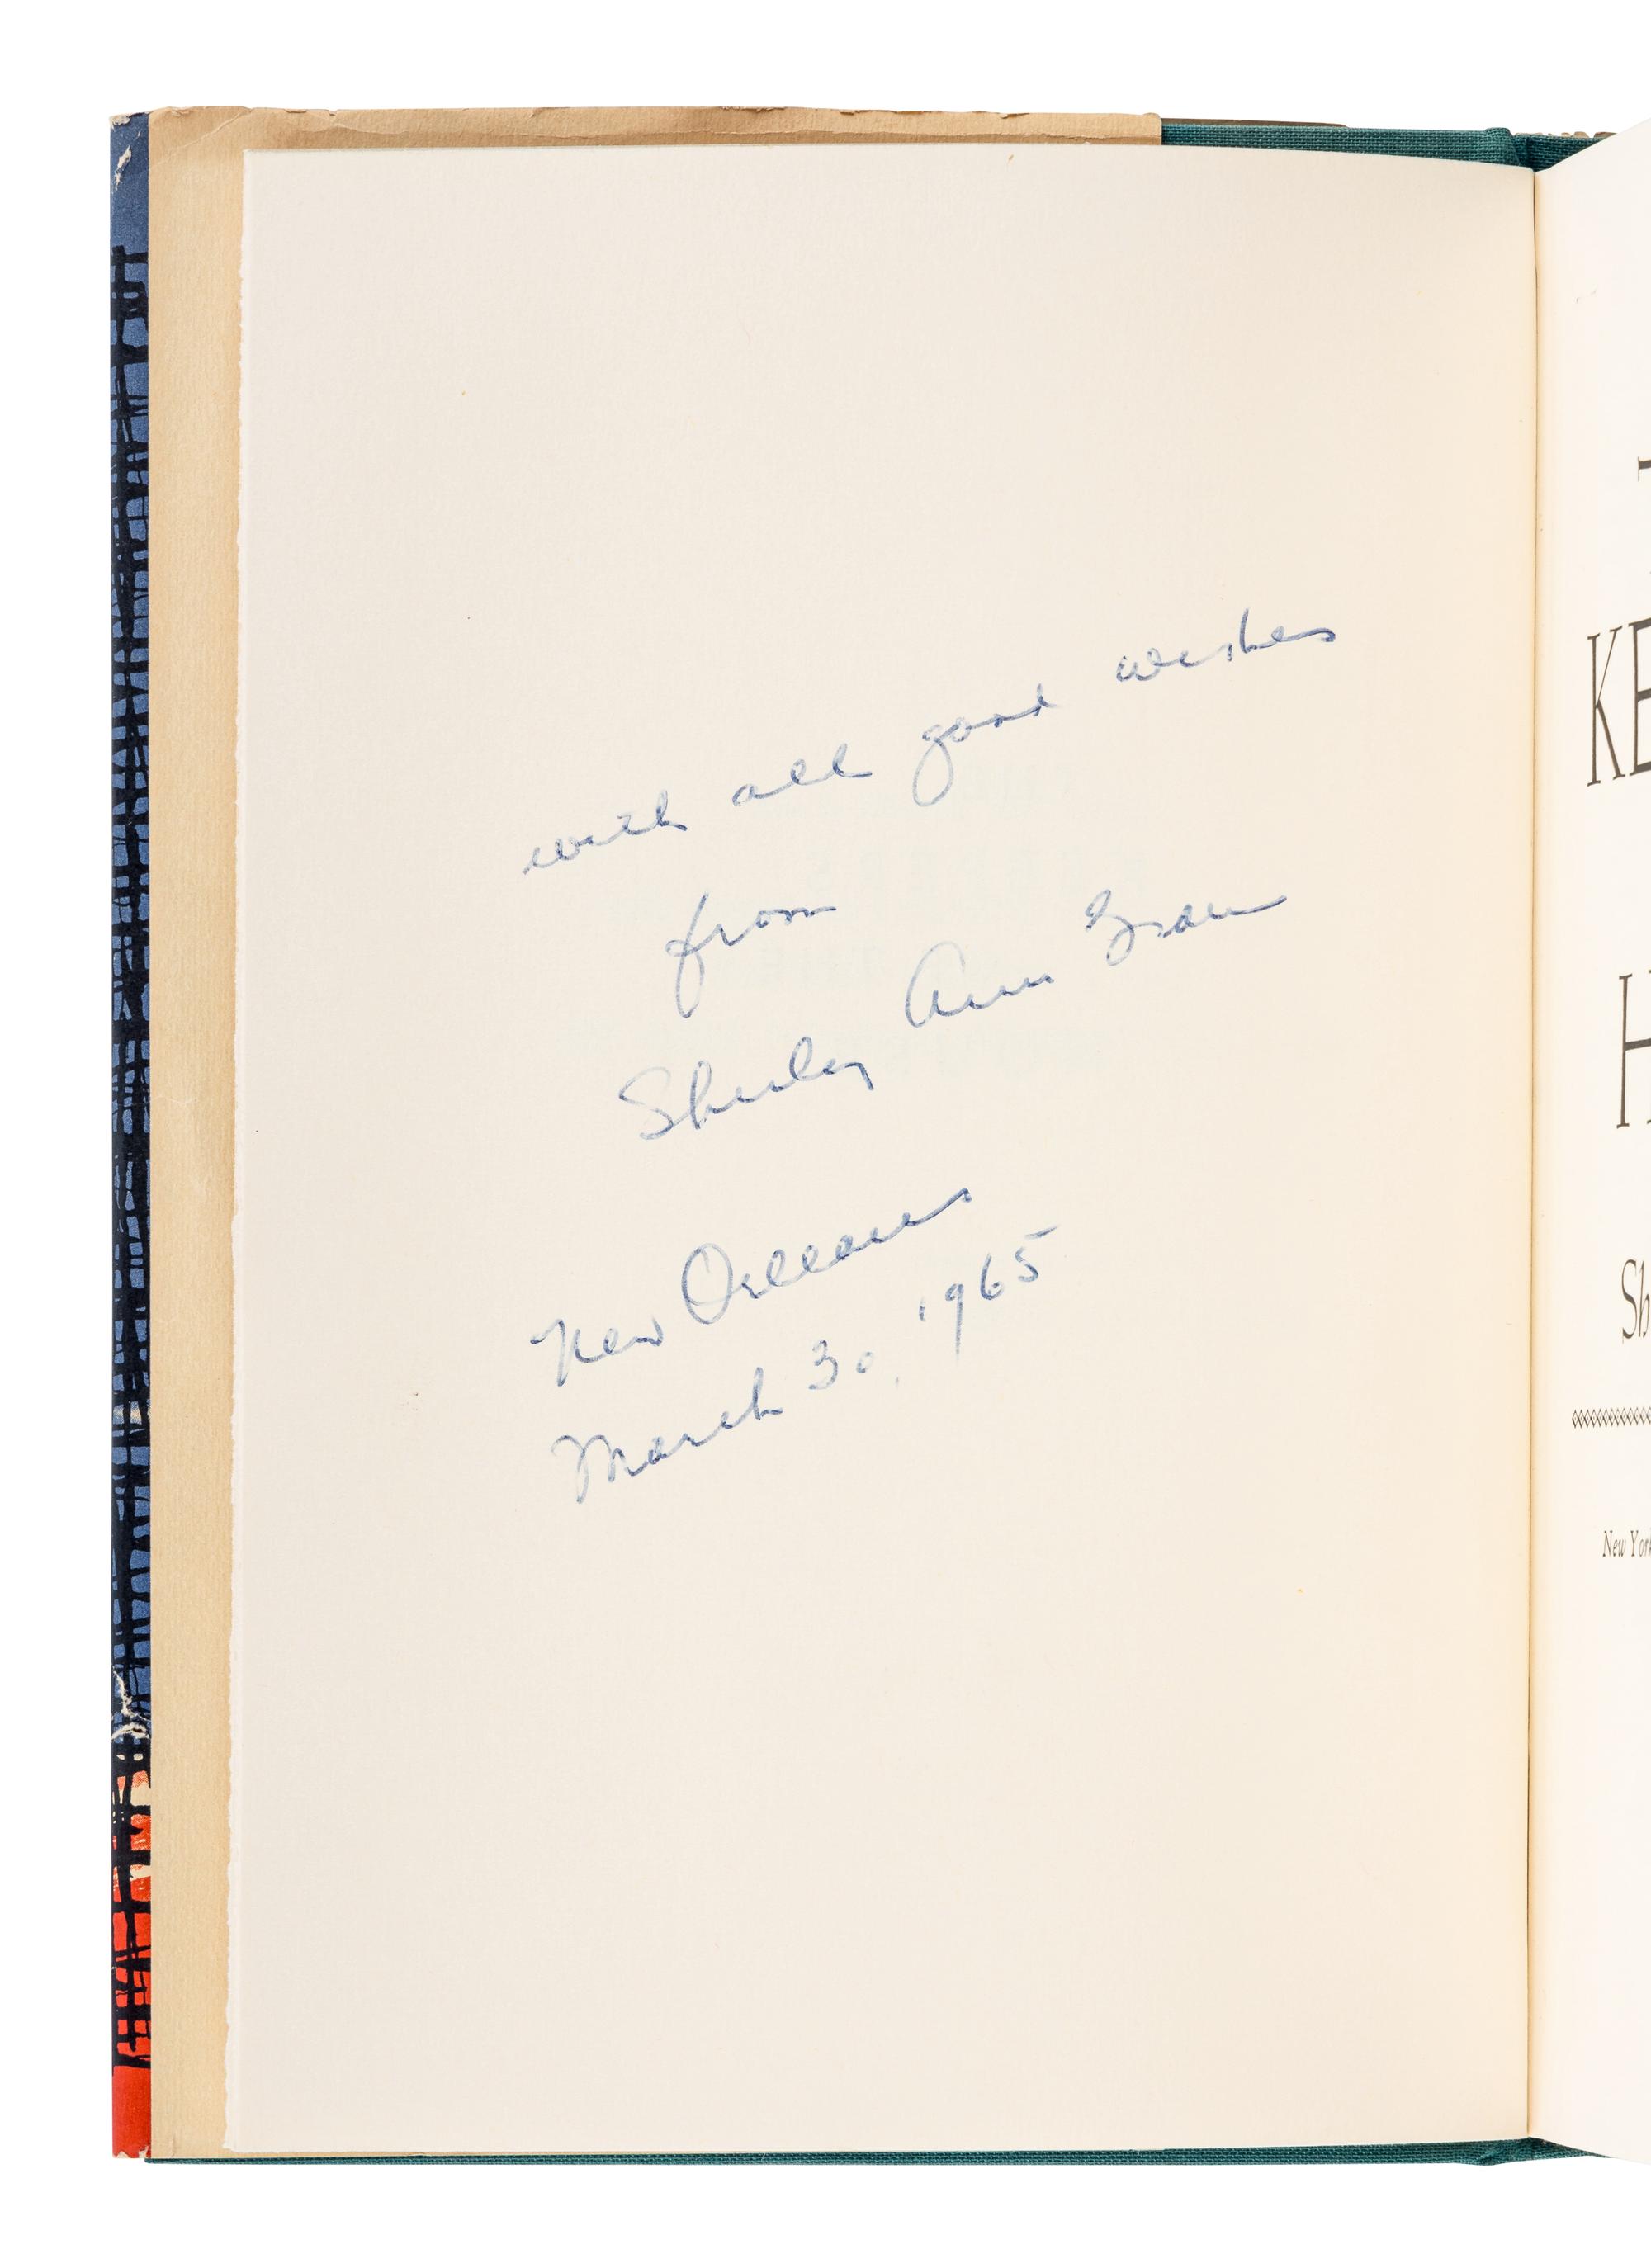 with all good wishes
from
Shirley Ann Grau
New Orleans
March 30, 1965
KE
H
Sh
New York